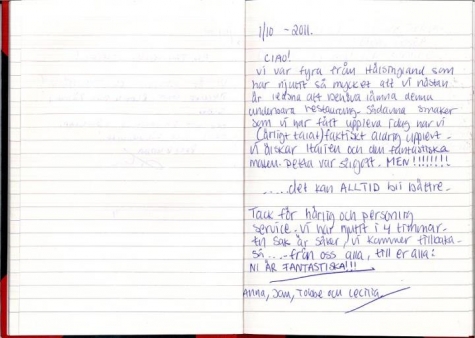 1/10 - 2011.
CIAO!
Vi var fyra från Hälsingland som
har njutit så mycket att vi nästan
är ledsna att behöva lämna denna
underbara restaurang. Sådanna smaker
som vi har fått uppleva idag har vi
(ärligt talat) faktiskt aldrig upplevt.
Vi älskar Italien och den fantastiska
maten. Detta var super. MEN!!!!!!!!
.....det kan ALLTID bli bättre.
Tack för härlig och personlig
service. Vi har njutit i 4 timmar.
En sak är säker, vi kommer tillbaka.
Så....från oss alla, till er alla:
NI ÄR FANTASTISKA!!!
Anna, Jan, Tobbe och Cecilia.